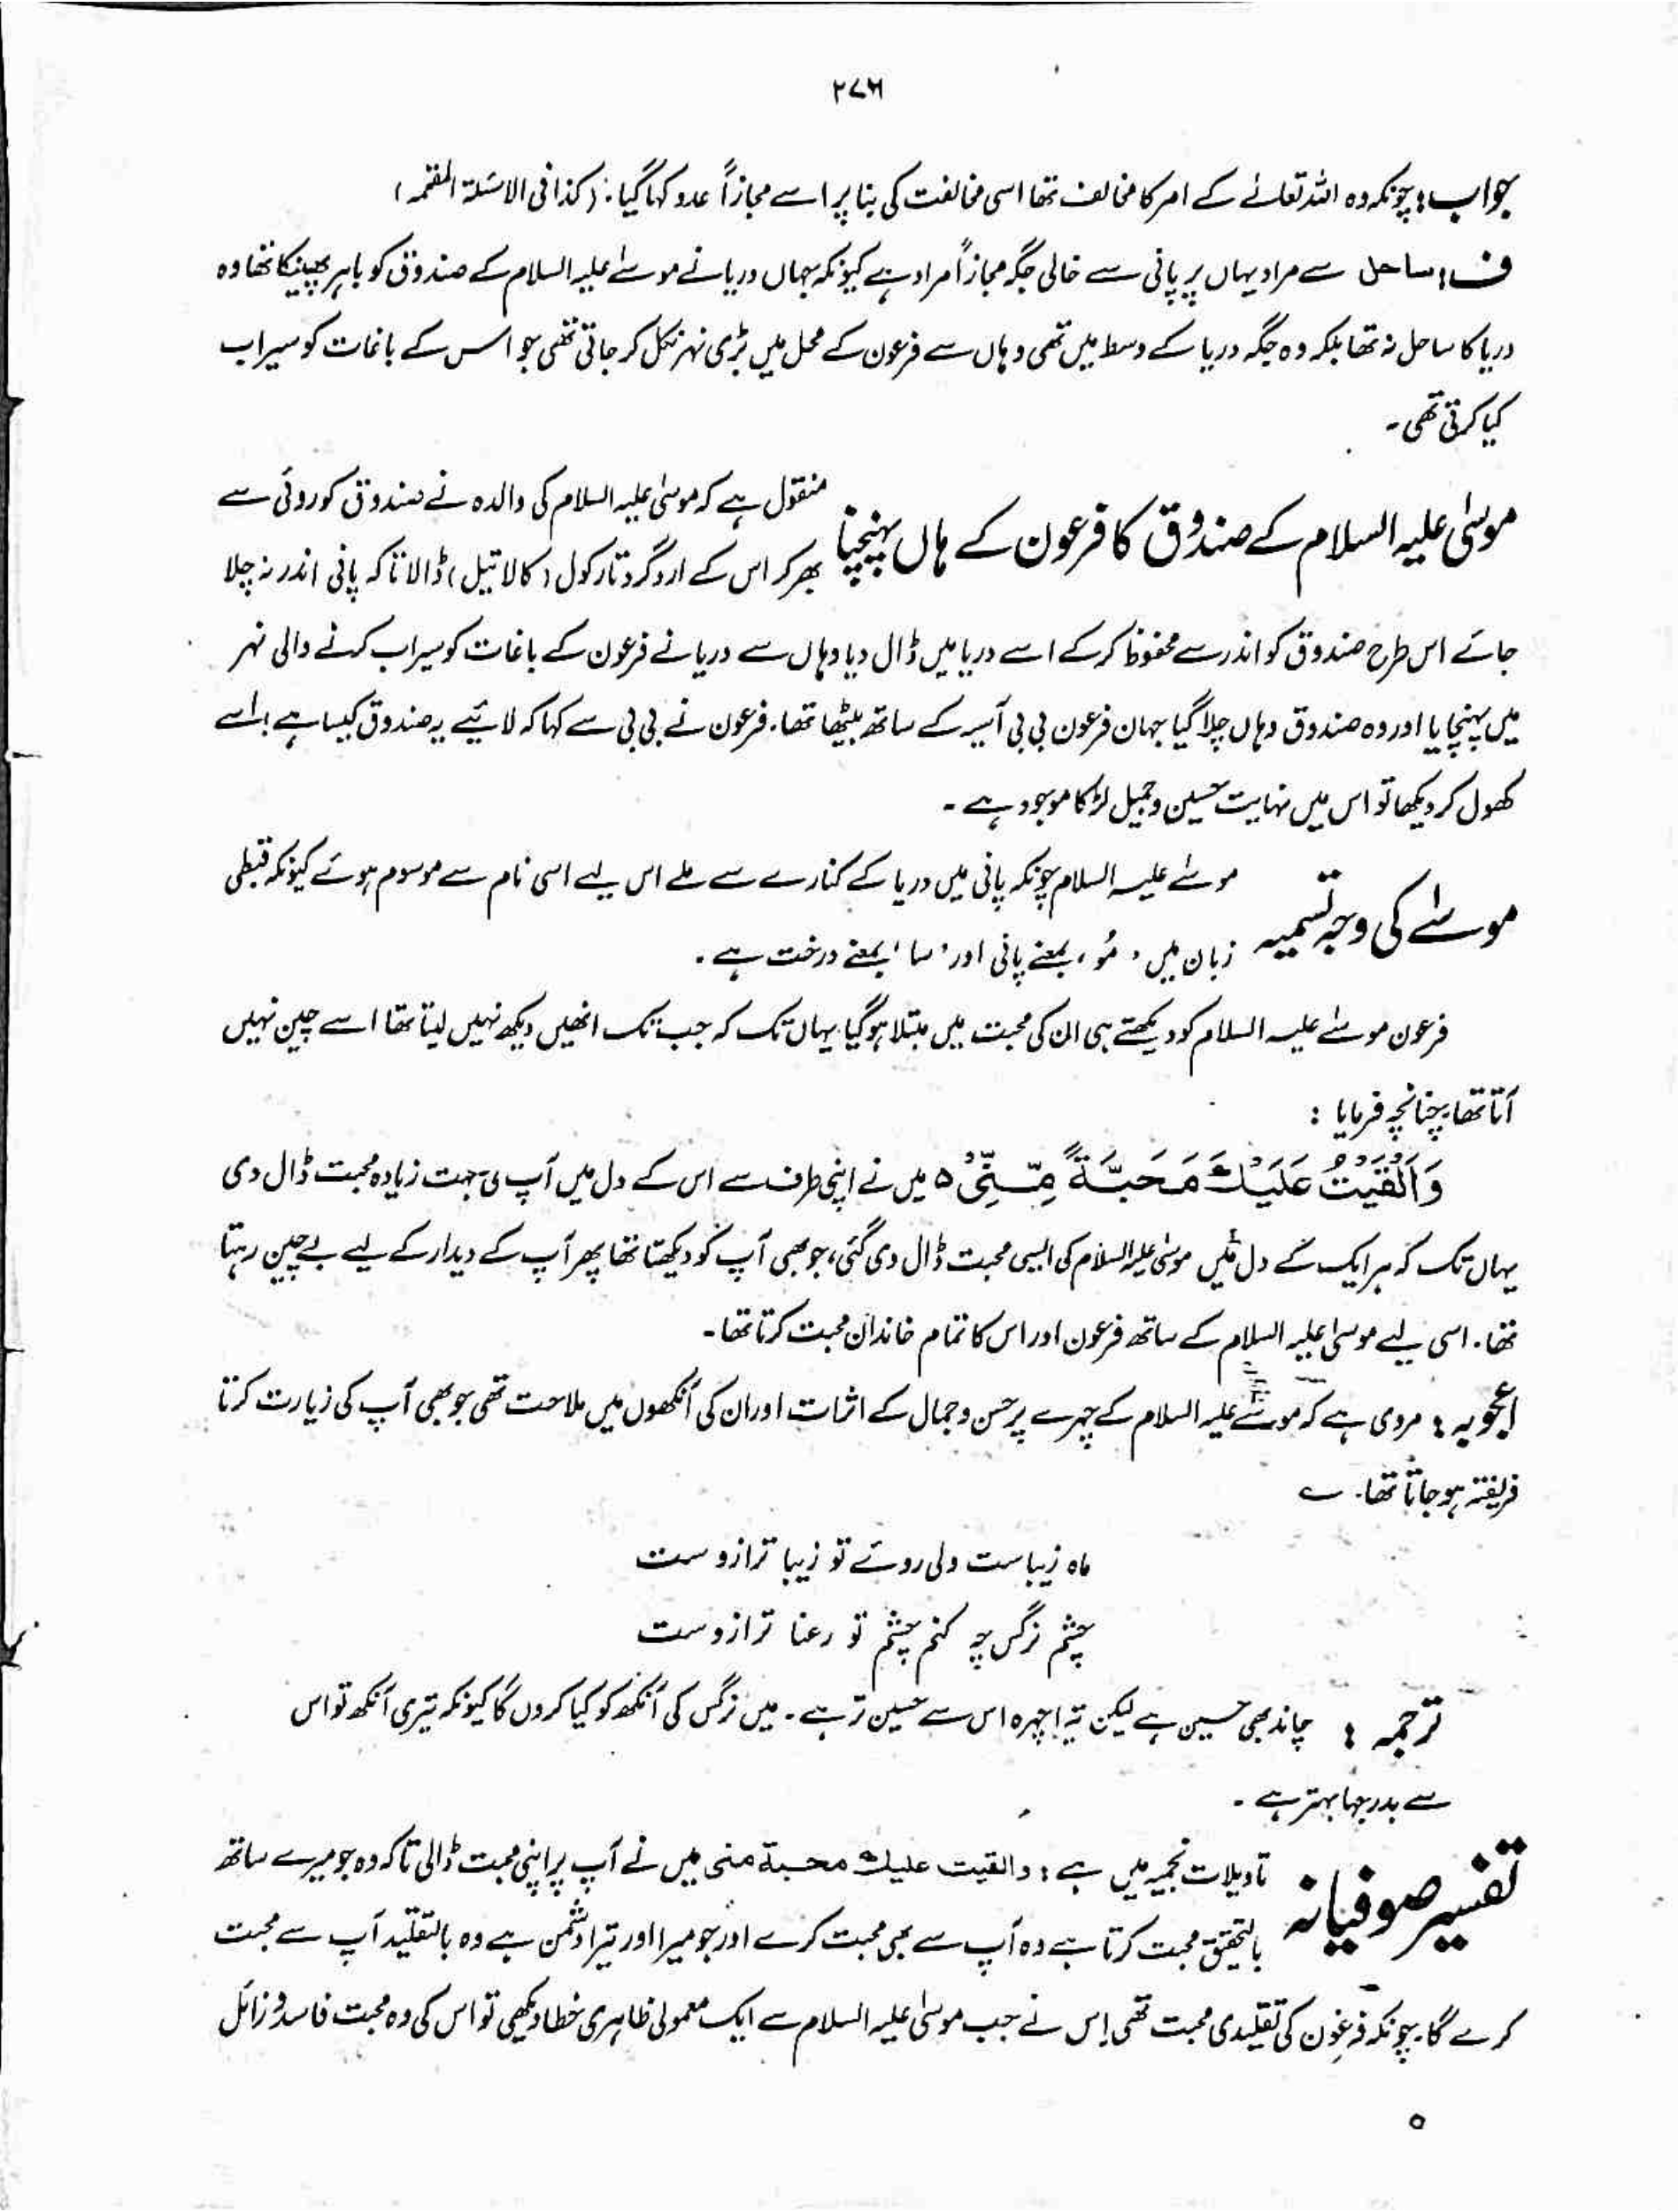 ۲۷۶
جواب: چونکہ وہ اللہ تعالےٰ کے امر کا مخالف تھا اسی مخالفت کی بنا پر اسے مجازاً عدو کہا گیا۔ (کذا فی الاسئلۃ المقحمہ)
ف: ساحل سے مراد یہاں پر پانی سے خالی جگہ مجازاً مراد ہے کیونکہ جہاں دریا نے موسےٰ علیہ السلام کے صندوق کو باہر پھینکا تھا وہ
دریا کا ساحل نہ تھا بلکہ وہ جگہ دریا کے وسط میں تھی وہاں سے فرعون کے محل میں بڑی نہر نکل کر جاتی تھی جو اس کے باغات کو سیراب
کیا کرتی تھی۔
موسیٰ علیہ السلام کے صندوق کا فرعون کے ہاں پہنچنا
منقول ہے کہ موسیٰ علیہ السلام کی والدہ نے صندوق کو روئی سے
بھر کر اس کے اردگرد تارکول (کالا تیل) ڈالا تاکہ پانی اندر نہ چلا
جائے اس طرح صندوق کو اندر سے محفوظ کر کے اسے دریا میں ڈال دیا وہاں سے دریا نے فرعون کے باغات کو سیراب کرنے والی نہر
میں پہنچایا اور وہ صندوق وہاں چلا گیا جہان فرعون بی بی آسیہ کے ساتھ بیٹھا تھا۔ فرعون نے بی بی سے کہا کہ لائیے یہ صندوق کیسا ہے، اسے
کھول کر دیکھا تو اس میں نہایت حسین و جمیل لڑکا موجود ہے۔
موسےٰ کی وجہ تسمیہ
موسےٰ علیہ السلام چونکہ پانی میں دریا کے کنارے سے ملے اس لیے اسی نام سے موسوم ہوئے کیونکہ قبطی
زبان میں 'مُو' بمعنے پانی اور 'سا' بمعنے درخت ہے۔
فرعون موسےٰ علیہ السلام کو دیکھتے ہی ان کی محبت میں مبتلا ہو گیا یہاں تک کہ جب تک انھیں دیکھ نہیں لیتا تھا اسے چین نہیں
آتا تھا چنانچہ فرمایا :
وَاَلْقَيْتُ عَلَيْكَ مَحَبَّةً مِّنِّىْ ہ میں نے اپنی طرف سے اس کے دل میں آپ کی بہت زیادہ محبت ڈال دی
یہاں تک کہ ہر ایک کے دل میں موسیٰ علیہ السلام کی ایسی محبت ڈال دی گئی، جو بھی آپ کو دیکھتا تھا پھر آپ کے دیدار کے لیے بے چین رہتا
تھا۔ اسی لیے موسیٰ علیہ السلام کے ساتھ فرعون اور اس کا تمام خاندان محبت کرتا تھا۔
اعجوبہ : مروی ہے کہ موسےٰ علیہ السلام کے چہرے پر حسن و جمال کے اثرات اور ان کی آنکھوں میں ملاحت تھی جو بھی آپ کی زیارت کرتا
فریفتہ ہو جاتا تھا۔ ؎
ماہ زیباست ولی روئے تو زیبا ترازوست
چشم نرگس چہ کنم چشم تو رعنا ترازوست
ترجمہ : چاند بھی حسین ہے لیکن تیرا چہرہ اس سے حسین تر ہے۔ میں نرگس کی آنکھ کو کیا کروں گا کیونکہ تیری آنکھ تو اس
سے بدرجہا بہتر ہے۔
تفسیر صوفیانہ
تاویلات نجمیہ میں ہے : والقیت علیك محبة منی میں نے آپ پر اپنی محبت ڈالی تاکہ وہ جو میرے ساتھ
بالتحقیق محبت کرتا ہے وہ آپ سے بھی محبت کرے اور جو میرا اور تیرا دشمن ہے وہ بالتقلید آپ سے محبت
کرے گا۔ چونکہ فرعون کی تقلیدی محبت تھی اس نے جب موسیٰ علیہ السلام سے ایک معمولی ظاہری خطا دیکھی تو اس کی وہ محبت فاسد و زائل